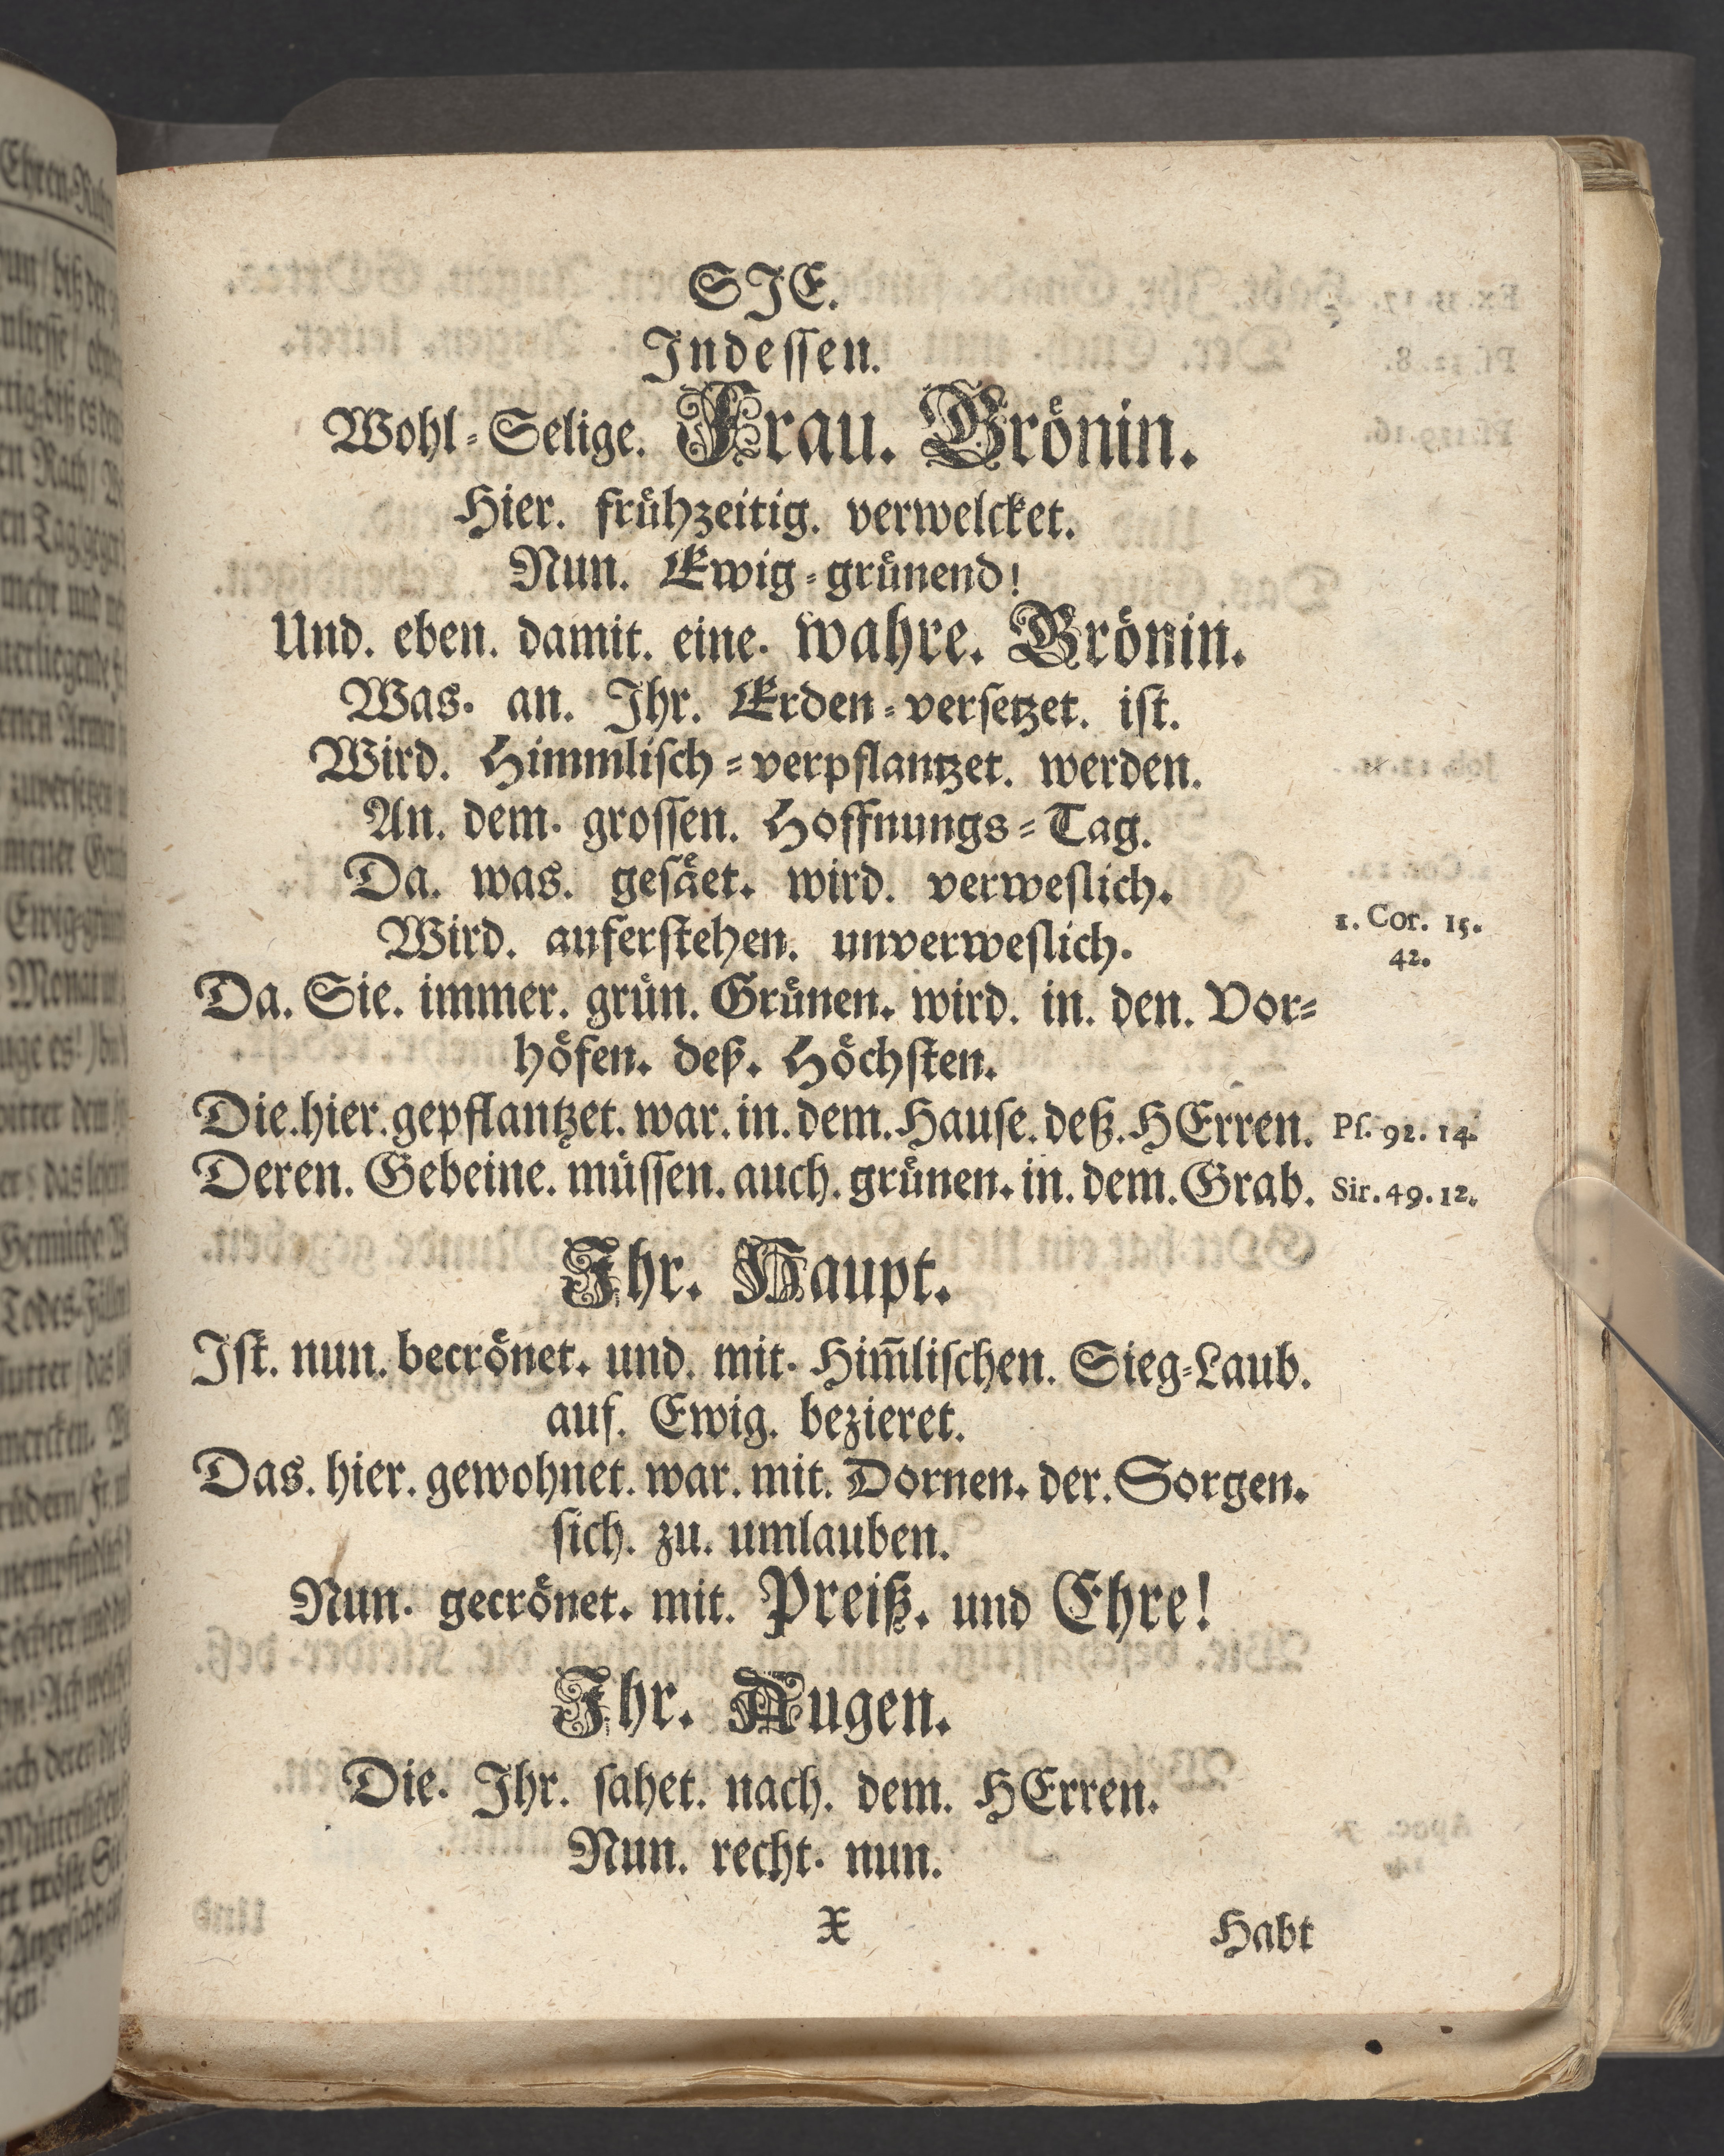 SJE.
Jndeſſen.
Wohl-Selige. Frau. Grönin.
Hier. frühzeitig. verwelcket.
Nun. Ewig-grünend!
Und. eben. damit. eine. wahre. Grönin.
Was. an. Jhr. Erden-verſetzet. iſt.
Wird. Himmliſch-verpflantzet. werden.
An. dem. groſſen. Hoffnungs-Tag.
Da. was. geſäet. wird. verweſlich.
Wird. auferſtehen. unverweſlich.
1. Cor. 15.
42.
Da. Sie. immer. grün. Grünen. wird. in. den. Vor-
höfen. deß. Höchſten.
Die. hier. gepflantzet. war. in. dem. Hauſe. deß. HErren. Pſ. 92. 14.
Deren. Gebeine. müſſen. auch. grünen. in. dem. Grab. Sir. 49. 12.
Jhr. Haupt.
Jſt. nun. becrönet. und. mit. Him̄liſchen. Sieg-Laub.
auf. Ewig. bezieret.
Das. hier. gewohnet. war. mit. Dornen. der. Sorgen.
ſich. zu. umlauben.
Nun. gecrönet. mit. Preiß. und Ehre!
Jhr. Augen.
Die. Jhr. ſahet. nach. dem. HErren.
Nun. recht. nun.
X Habt